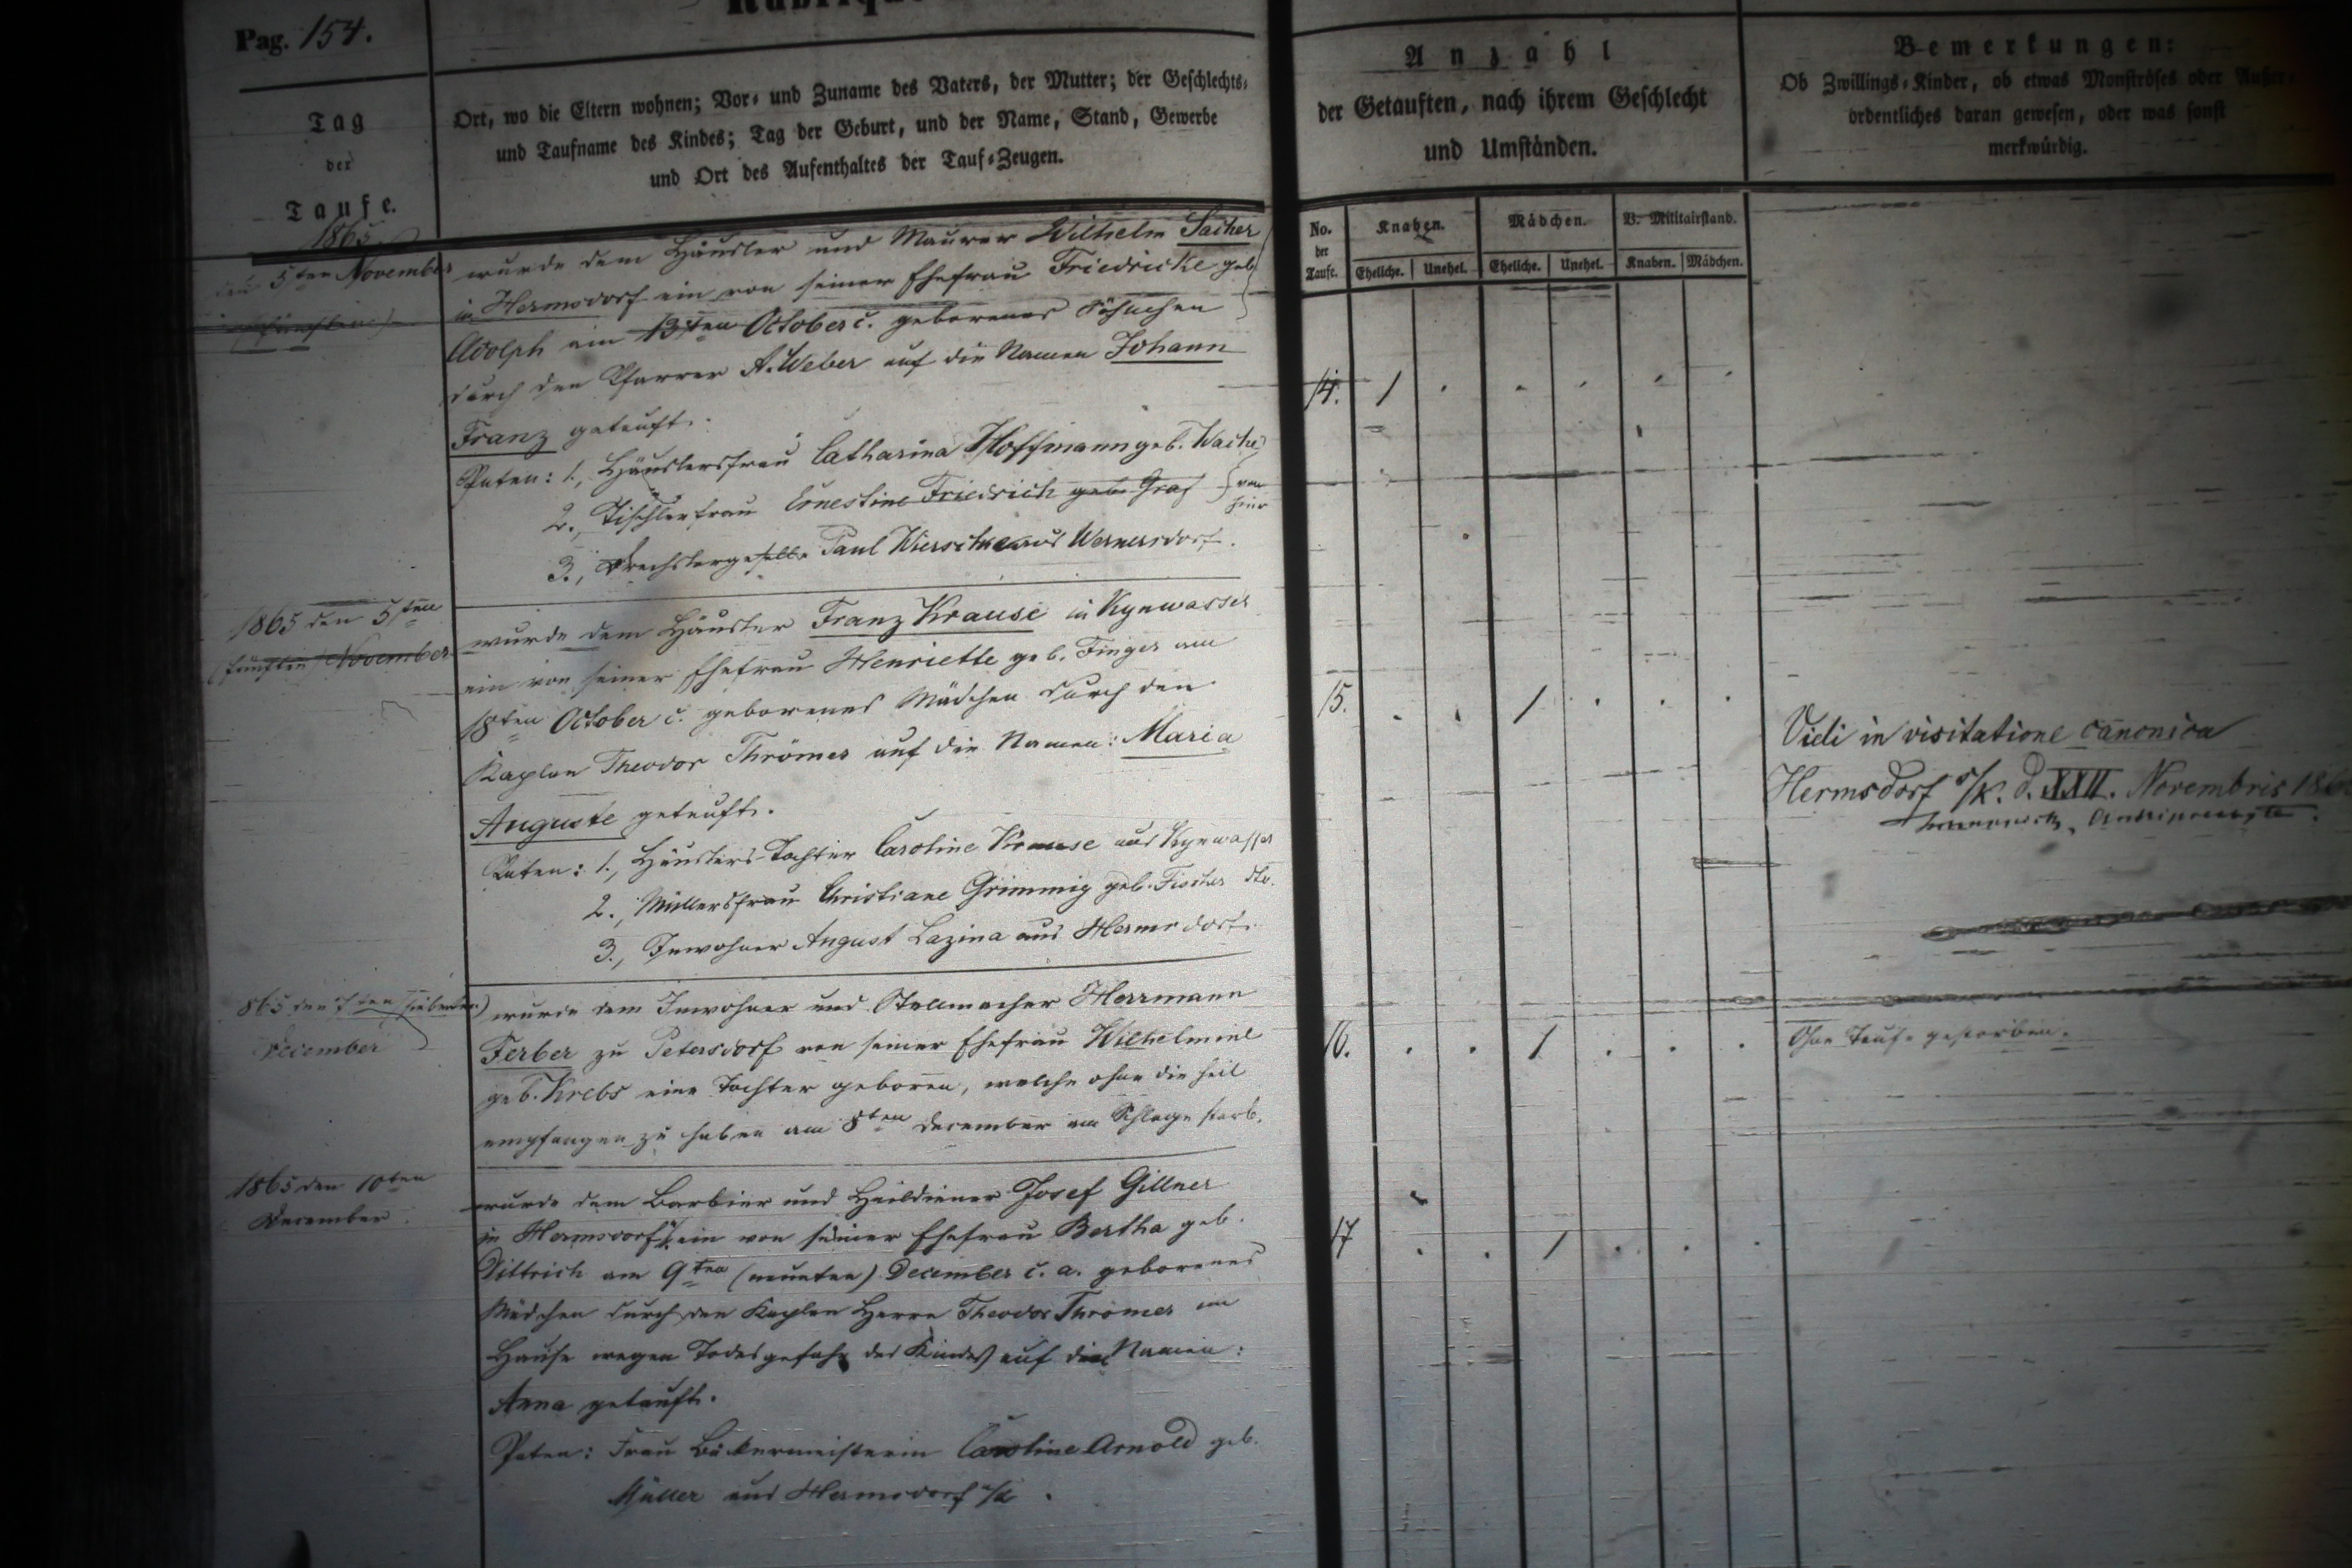 Pag. 154.
Tag
der
Taufe.
Ort, wo die Eltern wohnen; Vor- und Zuname des Vaters, der Mutter; der Geschlechts-
und Taufname des Kindes; Tag der Geburt, und der Name, Stand, Gewerbe
und Ort des Aufenthaltes der Tauf-Zeugen.
Anzahl
der Getauften, nach ihrem Geschlecht
und Umständen.
Bemerkungen:
Ob Zwillings-Kinder, ob etwas Monströses oder Außer-
ordentliches daran gewesen, oder was sonst
merkwürdig.
No.
der
Taufe.
Knaben. Mädchen. V. Militairstand.
Eheliche. Unehel. Eheliche. Unehel. Knaben. Mädchen.
1865
den 5ten November
wurde dem Häusler und Maurer Wilhelm Sacher
in Hermsdorf ein von seiner Ehefrau Friedricke geb
Adolph am 13ten October c. geborenes Söhnchen
durch den Pfarrer A. Weber auf die Namen Johann
Franz getauft.
14. 1
Paten: 1., Häuslersfrau Catharina Hoffmann geb.
2., Tischlerfrau Ernestine Friedrich geb. Graf von hier
3., Drechslergeselle Paul aus Wernersdorf.
1865 den 5ten
(fünften) November
wurde dem Häusler Franz Krause in Kynwasser
ein von seiner Ehefrau Henriette geb. Finger am
18ten October c. geborenes Mädchen durch den
Kaplan Theodor Thrömer auf die Namen: Maria
Auguste getauft.
15. 1
Vidi in visitatione canonica
Hermsdorf s/K. d. XXII. Novembris
Paten: 1., Häuslers-Tochter Caroline Krause aus Kynwasser
2., Müllersfrau Christiane Grimmig geb. Fischer dto.
3., Inwohner August Lazina aus Hermsdorf.
865 den 7ten (siebenten)
December
wurde dem Inwohner und Stellmacher Herrmann
Ferber zu Petersdorf von seiner Ehefrau Wilhelmine
geb. Krebs eine Tochter geboren, welche ohne die heil
empfangen zu haben am 8ten December am Schlage starb.
16. 1
Ohne Taufe gestorben.
1865 den 10ten
December
wurde dem Barbier und Heildiener Josef Gillner
in Hermsdorf ein von seiner Ehefrau Bertha geb.
Dittrich am 9ten (neunten) December c. a. geborenes
Mädchen durch den Kaplan Herrn Theodor Thrömer im
Hause wegen Todesgefahr des Kindes auf die Namen:
Anna getauft.
17 1
Paten: Frau Bäckermeisterin Caroline Arnold geb.
Müller aus Hermsdorf s/K.